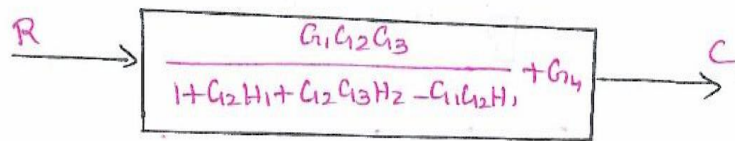 R
G₁G₂G₃
1+G₂H₁+G₂G₃H₂-G₁G₂H₁
+G₄
C